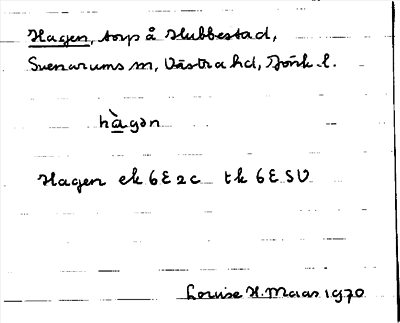 Hagen, torp å Hubbestad,
Svenarums sn, Västra hd, Jönk l.
hàgən
Hagen ek 6E2c tk 6E SV
Louise H. Maas 1970